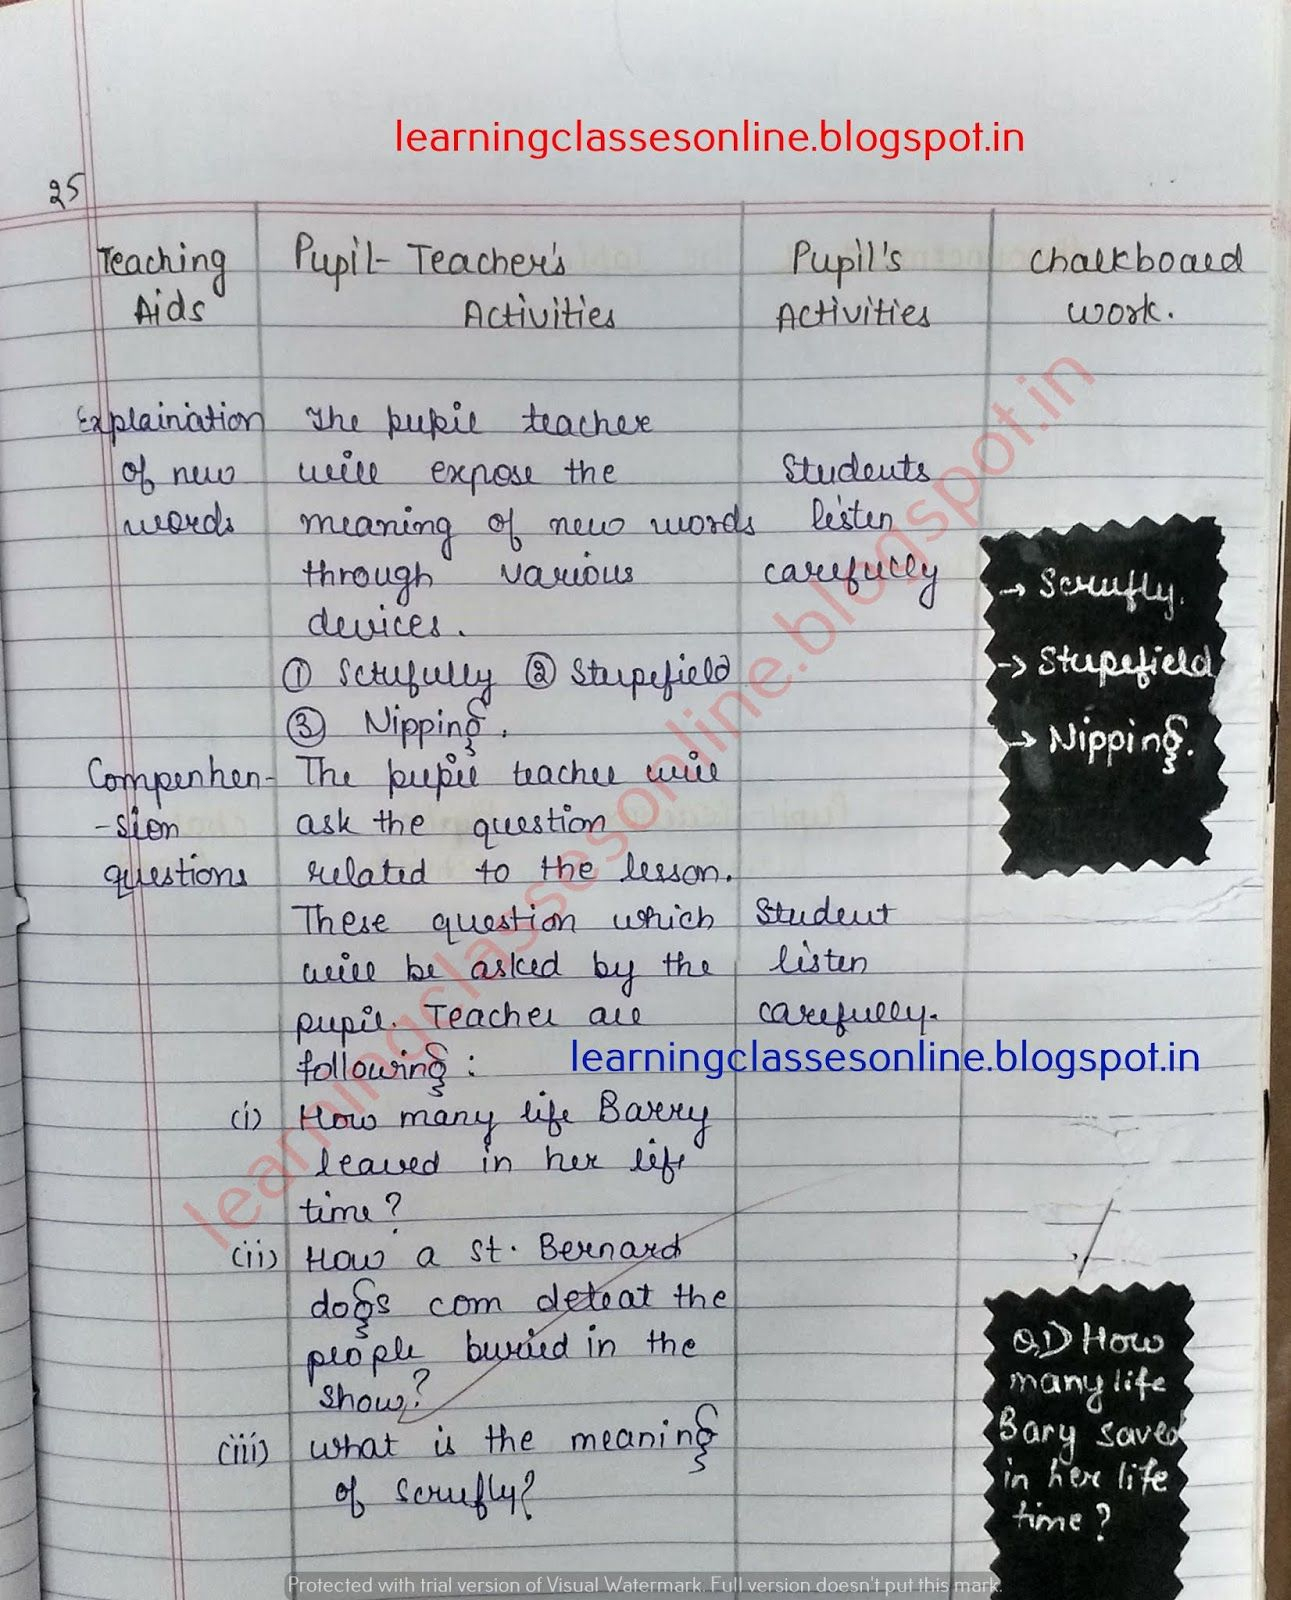 learningclassesonline.blogspot.in
25
Teaching Aids
Pupil- Teacher's Activities
Pupil's Activities
Chalkboard work.
Explainiation of new words
The pupil teacher
will expose the
meaning of new words
through various
devices.
① Sctufully ② Stupefield
③ Nipping.
Students
listen
carefully
→ Scrufly.
→ Stupefield
→ Nipping.
Compenhen-
-sion
questions
The pupil teacher will
ask the question
related to the lesson.
These question which
will be asked by the
pupil. Teacher are
following :
Student
listen
carefully.
learningclassesonline.blogspot.in
(i) How many life Barry
leaved in her life
time?
(ii) How a St. Bernard
dogs com deteat the
people buried in the
show?
(iii) what is the meaning
of scrufly?
Q1) How
many life
Bary saved
in her life
time?
learningclassesonline.blogspot.in
Protected with trial version of Visual Watermark. Full version doesn't put this mark.